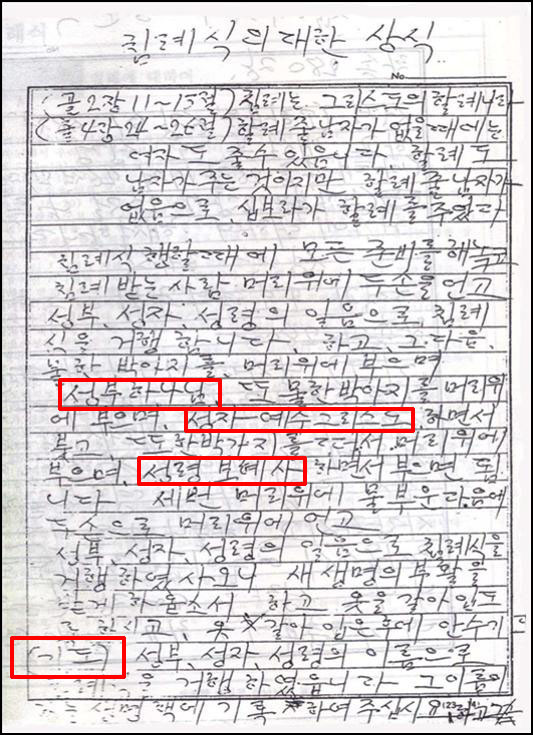 침례식의 대한 상식
No
(골2장11~15절) 침례는 그리스도의 할례니라
(출4장24~26절) 할례 줄 남자가 없을 때에는
여자도 줄 수 있읍니다. 할례도
남자가 주는 것이지만 할례 줄 남자가
없음으로, 십보라가 할례를 주었다
침례식 행할 때에 모든 준비를 해놓고
침례 받는 사람 머리위에 두손을 언고
성부, 성자, 성령의 일음으로, 침례
식을 거행 합니다. 하고, 그 다음,
물한 박아지를, 머리위에 부으며
성부하나님, 또 물한박아지를 머리위
에 부으며, 성자 예수그리스도, 하면서
붓고, 또 한박가지를 떠서 머리위에
부으며, 성령 보혜사 하면서 부으면 됩
니다 세번 머리위에 물 부은다음에
두손으로 머리위에 언고
성부, 성자, 성령의 일음으로 침례식을
거행 하였사오니 새 생명의 부활을
하옵소서 하고 옷을 갈아입도
하시고, 옷 갈아 입은후에 안수기
(기도) 성부, 성자, 성령의 이름으로
거행 하였읍니다 그 이름이
생명책에 기록 하여 주십시